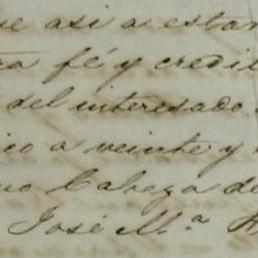 ue asi a estar
ra fé y credi
del interesado
co a veinte y
no Cabeza de
José M.ª